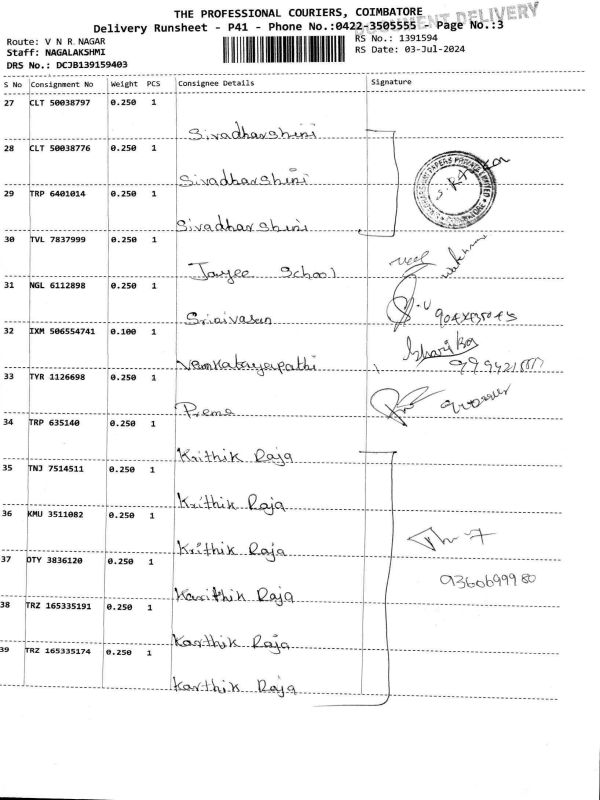 THE PROFESSIONAL COURIERS, COIMBATORE
Delivery Runsheet - P41 - Phone No.:0422-3505555 - Page No.:3
DOCUMENT DELIVERY
Route: V N R NAGAR
RS No.: 1391594
Staff: NAGALAKSHMI
RS Date: 03-Jul-2024
DRS No.: DCJB139159403
S No Consignment No Weight PCS Consignee Details Signature
27 CLT 50038797 0.250 1
Sivadharshini
28 CLT 50038776 0.250 1
Sivadharshini
29 TRP 6401014 0.250 1
Sivadharshini
30 TVL 7837999 0.250 1
Jayee School
31 NGL 6112898 0.250 1
Srinivasan
32 IXM 506554741 0.100 1
Venkatayapathi
33 TYR 1126698 0.250 1
Prema
34 TRP 635140 0.250 1
Krithik Raja
35 TNJ 7514511 0.250 1
Krithik Raja
36 KMU 3511082 0.250 1
Krithik Raja
37 OTY 3836120 0.250 1
9360699980
Karithik Raja
38 TRZ 165335191 0.250 1
Karthik Raja
39 TRZ 165335174 0.250 1
Karthik Raja